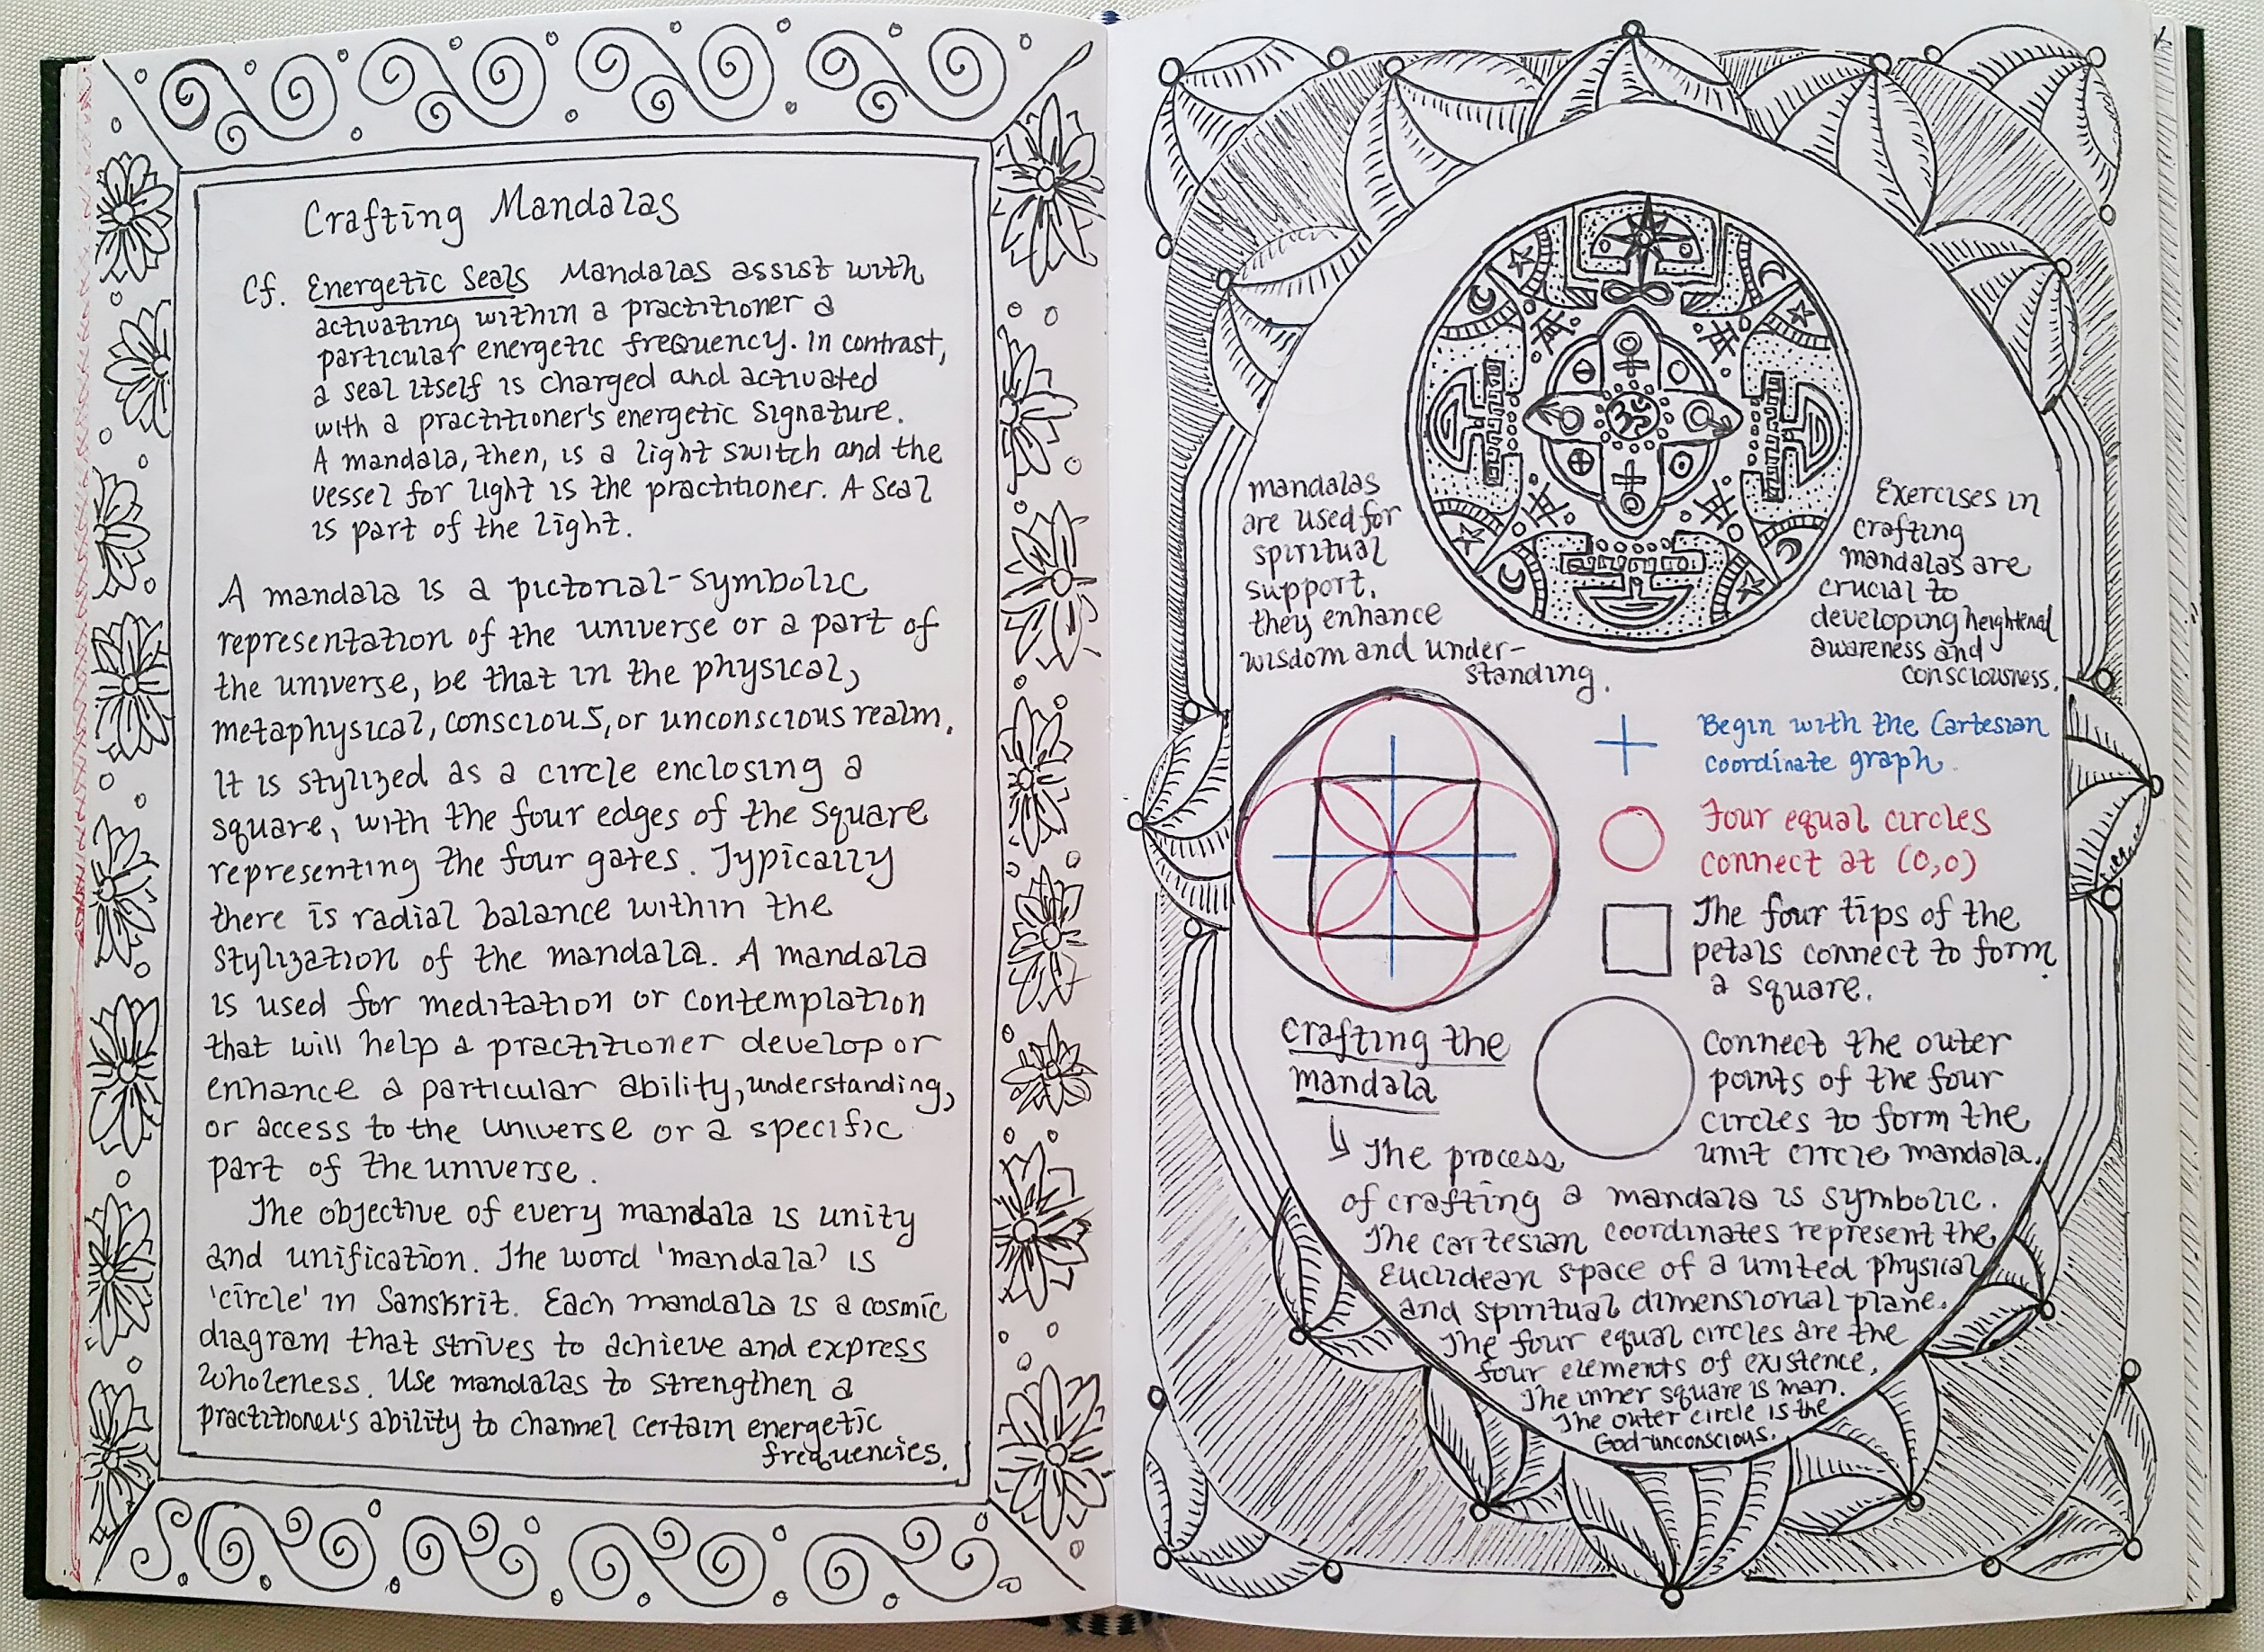 Crafting Mandalas
Cf. Energetic Seals Mandalas assist with
activating within a practitioner a
particular energetic frequency. In contrast,
a seal itself is charged and activated
with a practitioner's energetic signature.
A mandala, then, is a light switch and the
vessel for light is the practitioner. A seal
is part of the light.
A mandala is a pictorial-symbolic
representation of the universe or a part of
the universe, be that in the physical,
metaphysical, conscious, or unconscious realm.
It is stylized as a circle enclosing a
square, with the four edges of the square
representing the four gates. Typically
there is radial balance within the
stylization of the mandala. A mandala
is used for meditation or contemplation
that will help a practitioner develop or
enhance a particular ability, understanding,
or access to the universe or a specific
part of the universe.
The objective of every mandala is unity
and unification. The word 'mandala' is
'circle' in Sanskrit. Each mandala is a cosmic
diagram that strives to achieve and express
wholeness. Use mandalas to strengthen a
practitioner's ability to channel certain energetic
frequencies.
ॐ
mandalas
are used for
spiritual
support.
they enhance
wisdom and under-
standing.
Exercises in
crafting
mandalas are
crucial to
developing heightened
awareness and
consciousness.
Begin with the Cartesian
coordinate graph.
Four equal circles
connect at (0,0)
The four tips of the
petals connect to form
a square.
Connect the outer
points of the four
circles to form the
unit circle mandala.
crafting the
mandala
The process
of crafting a mandala is symbolic.
The cartesian coordinates represent the
Euclidean space of a united physical
and spiritual dimensional plane.
The four equal circles are the
four elements of existence.
The inner square is man.
The outer circle is the
God-unconscious.